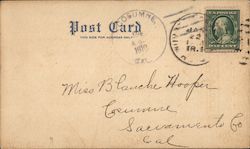 COSUMNE,
1912
CAL.
Post Card
THIS SIDE FOR ADDRESS ONLY
Miss Blanche Hooper
Cosumne
Sacramento Co
Cal